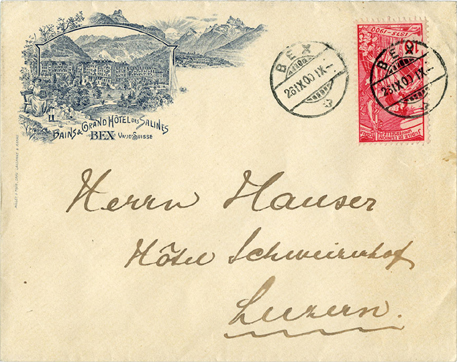 BAINS & GRAND HÔTEL DES SALINES
BEX VAUD SUISSE
BEX
26.IX.00.IX-
BEX
26.IX.00.IX-
Herrn Hauser
Hôtel Schweizerhof
Luzern.